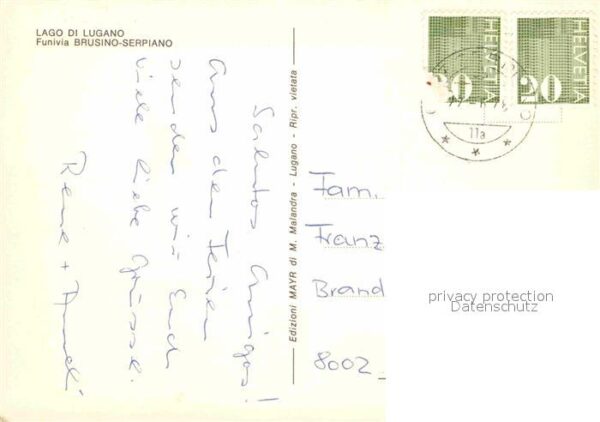 LAGO DI LUGANO
Funivia BRUSINO-SERPIANO
Salutos Amigos!
Aus den Ferien
senden wir Euch
viele liebe Grüsse.
René +
Edizioni MAYR di M. Malandra - Lugano - Ripr. vietata
HELVETIA
20
HELVETIA
20
11a
Fam.
Franz
Brand
8002
privacy protection
Datenschutz